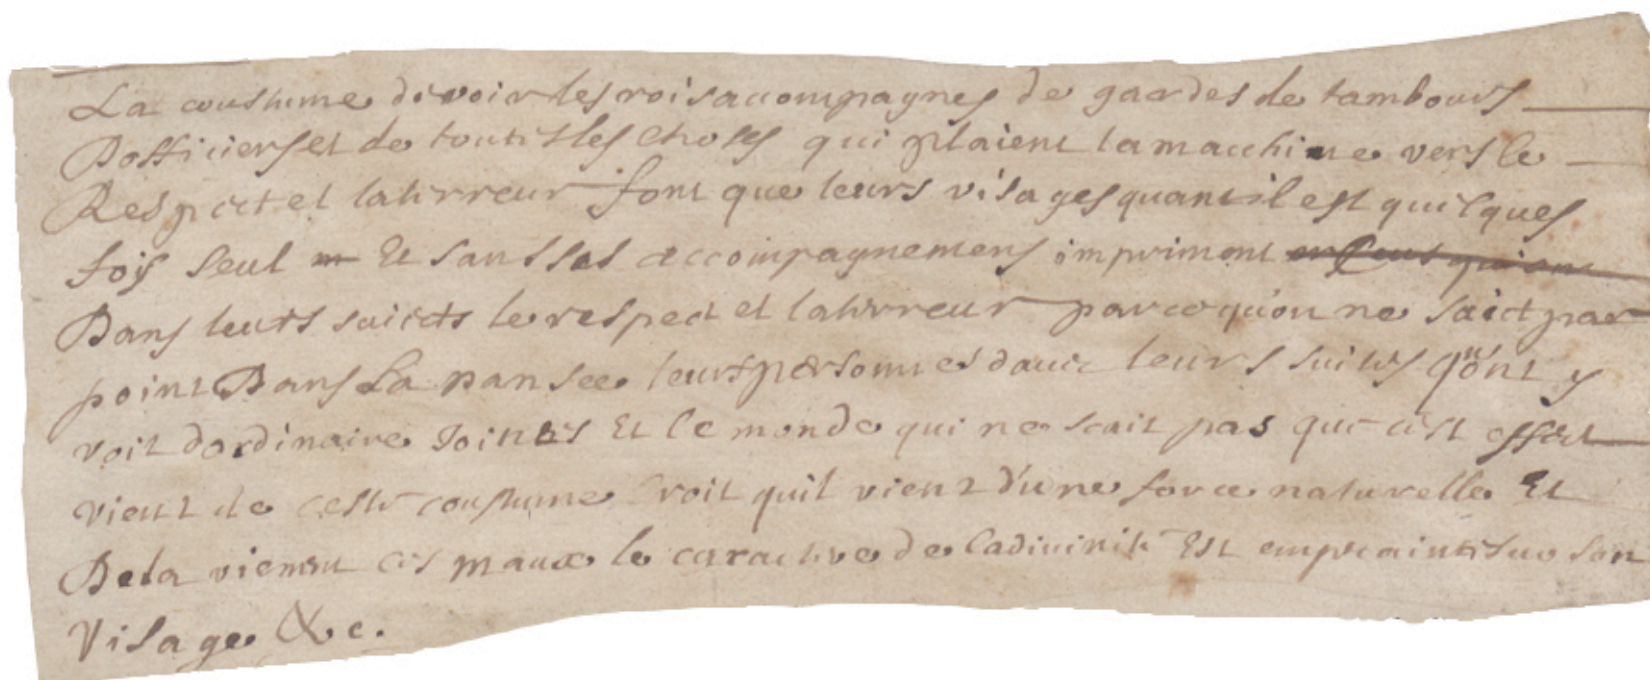 La coustume de voir les rois accompagnes de gardes de tambours
Dofficiers et de toutes les choses qui plaient la machine vers le
Respect et la terreur font que leurs visages quant il est quelques
fois seul Et sans ses accompagnemens impriment
Dans leurs suiects le respect et la terreur parce qu'on ne saict par
point Dans La pansee leurs personnes d'avec leurs suites qu'ont y
voit dordinaire Jointes Et le monde qui ne scait pas que cest effect
vient de ceste coustume Croit quil vient d'une force naturelle Et
De la viennent ces maux le caractere de la divinite Est emprainte sur son
Visage &c.